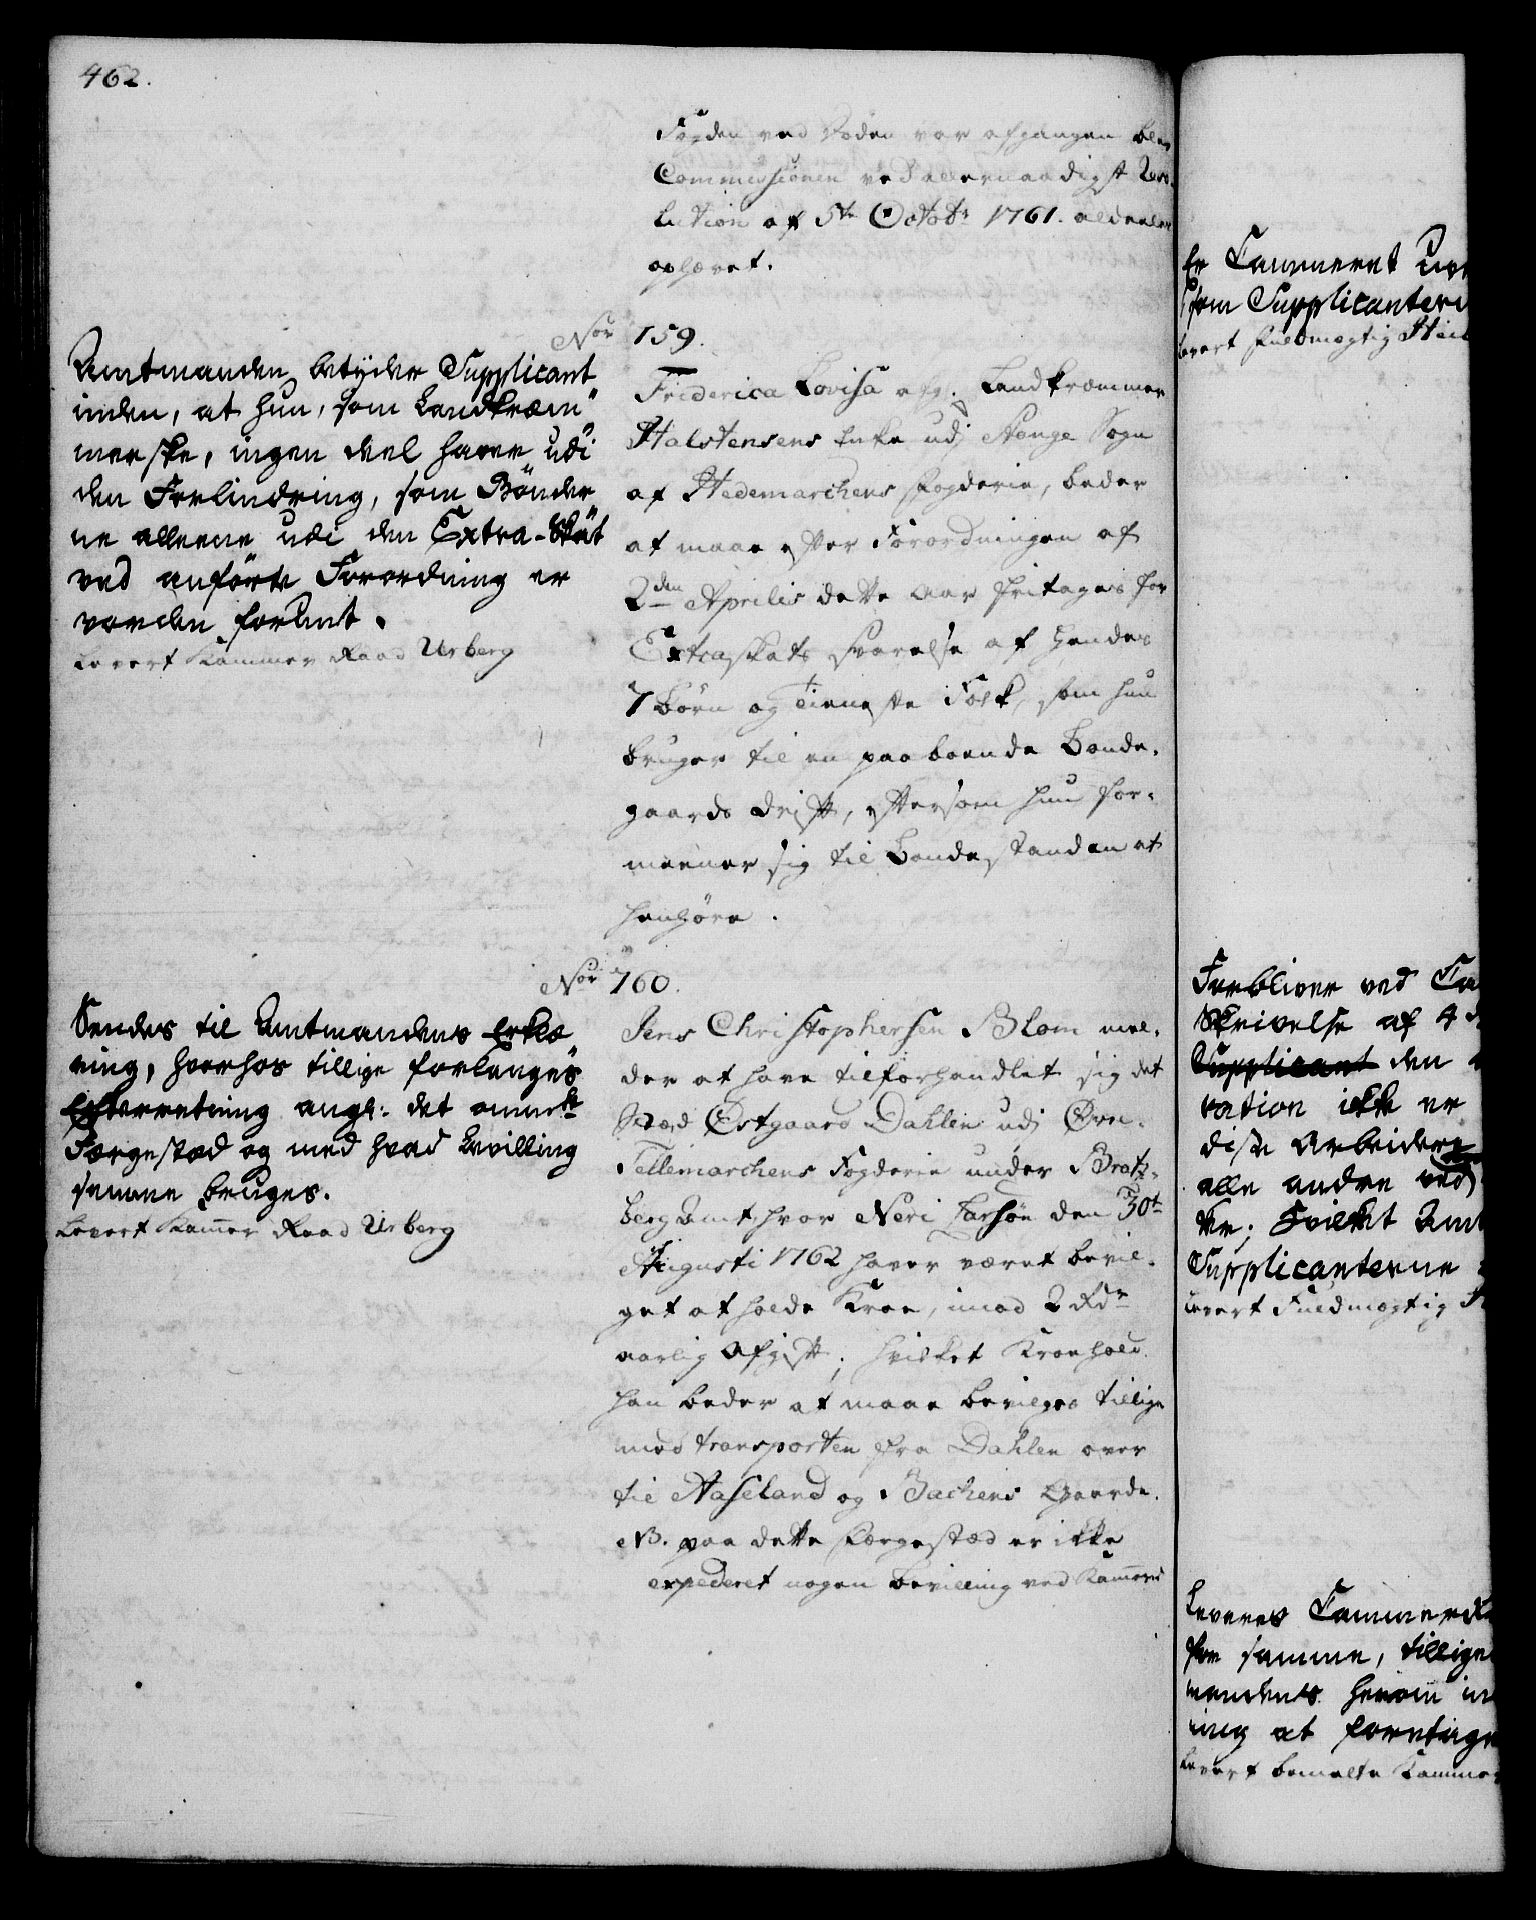 462.
Fogden ved Døden var afgangen blev
Commissionen ved allernaadigst Reso-
lution af 5te Octobr 1761. aldeeles
ophævet.
Nor 159.
Friderica Lovisa afg. Landkræmmer
Halstensens Enke udj Stange Sogn
af Hedemarchens Fogderie, beder
at maae efter Forordningen af
2den Aprilis dette Aar fritages for
Extraskats Svarelse af hendes
7 Børn og Tieneste Folk, som hun
bruger til en paaboende Bonde-
gaards Drift, eftersom hun for-
meener sig til Bondestanden at
henhøre.
Amtmanden betyder Supplicant
inden, at hun, som Landkræm"
merske, ingen deel haver udi
den Forlindring, som Bönder
ne alleene udi den Extra-Skat
ved anförte Forordning er
vorden forundt.
Levert Kammer Raad Urberg
Nor 760.
Jens Christophersen Blom mel-
der at have tilforhandlet sig det
Stæd Østgaard Dahlen udj Øvre
Tellemarchens Fogderie under Bratz-
berg Amt, hvor Neri Larsøn den 30te
Augusti 1762 haver været bevil-
get at holde Kroe, imod 2 Rdr
aarlig Afgift; hvilket Kroehold
han beder at maae bevilges tillige
med transporten fra Dahlen over
til Aaseland og Bachens Gaarde.
NB. paa dette Færgestæd er ikke
expederet nogen bevilling ved Kammeret
Sendes til Amtmandens Erklæ
ring, hvorhos tillige forlanges
Efterretning angl: det ommelte
Færgestæd og med hvad Bevilling
samme bruges.
Levert Kammer Raad Urberg
Er Cammeret
som Supplicanter
Levert Fuldmægtig
Forbliver ved
Skrivelse af 4
Supplicant den
ration ikke er
disse Arbeidere
alle andre ved
ke; Hvilket Amt
Supplicanterne
Levert Fuldmægtig
Leveres Cammer
for samme, tillige
mandens herom
ing at foretage
Levert bemelte Kammer